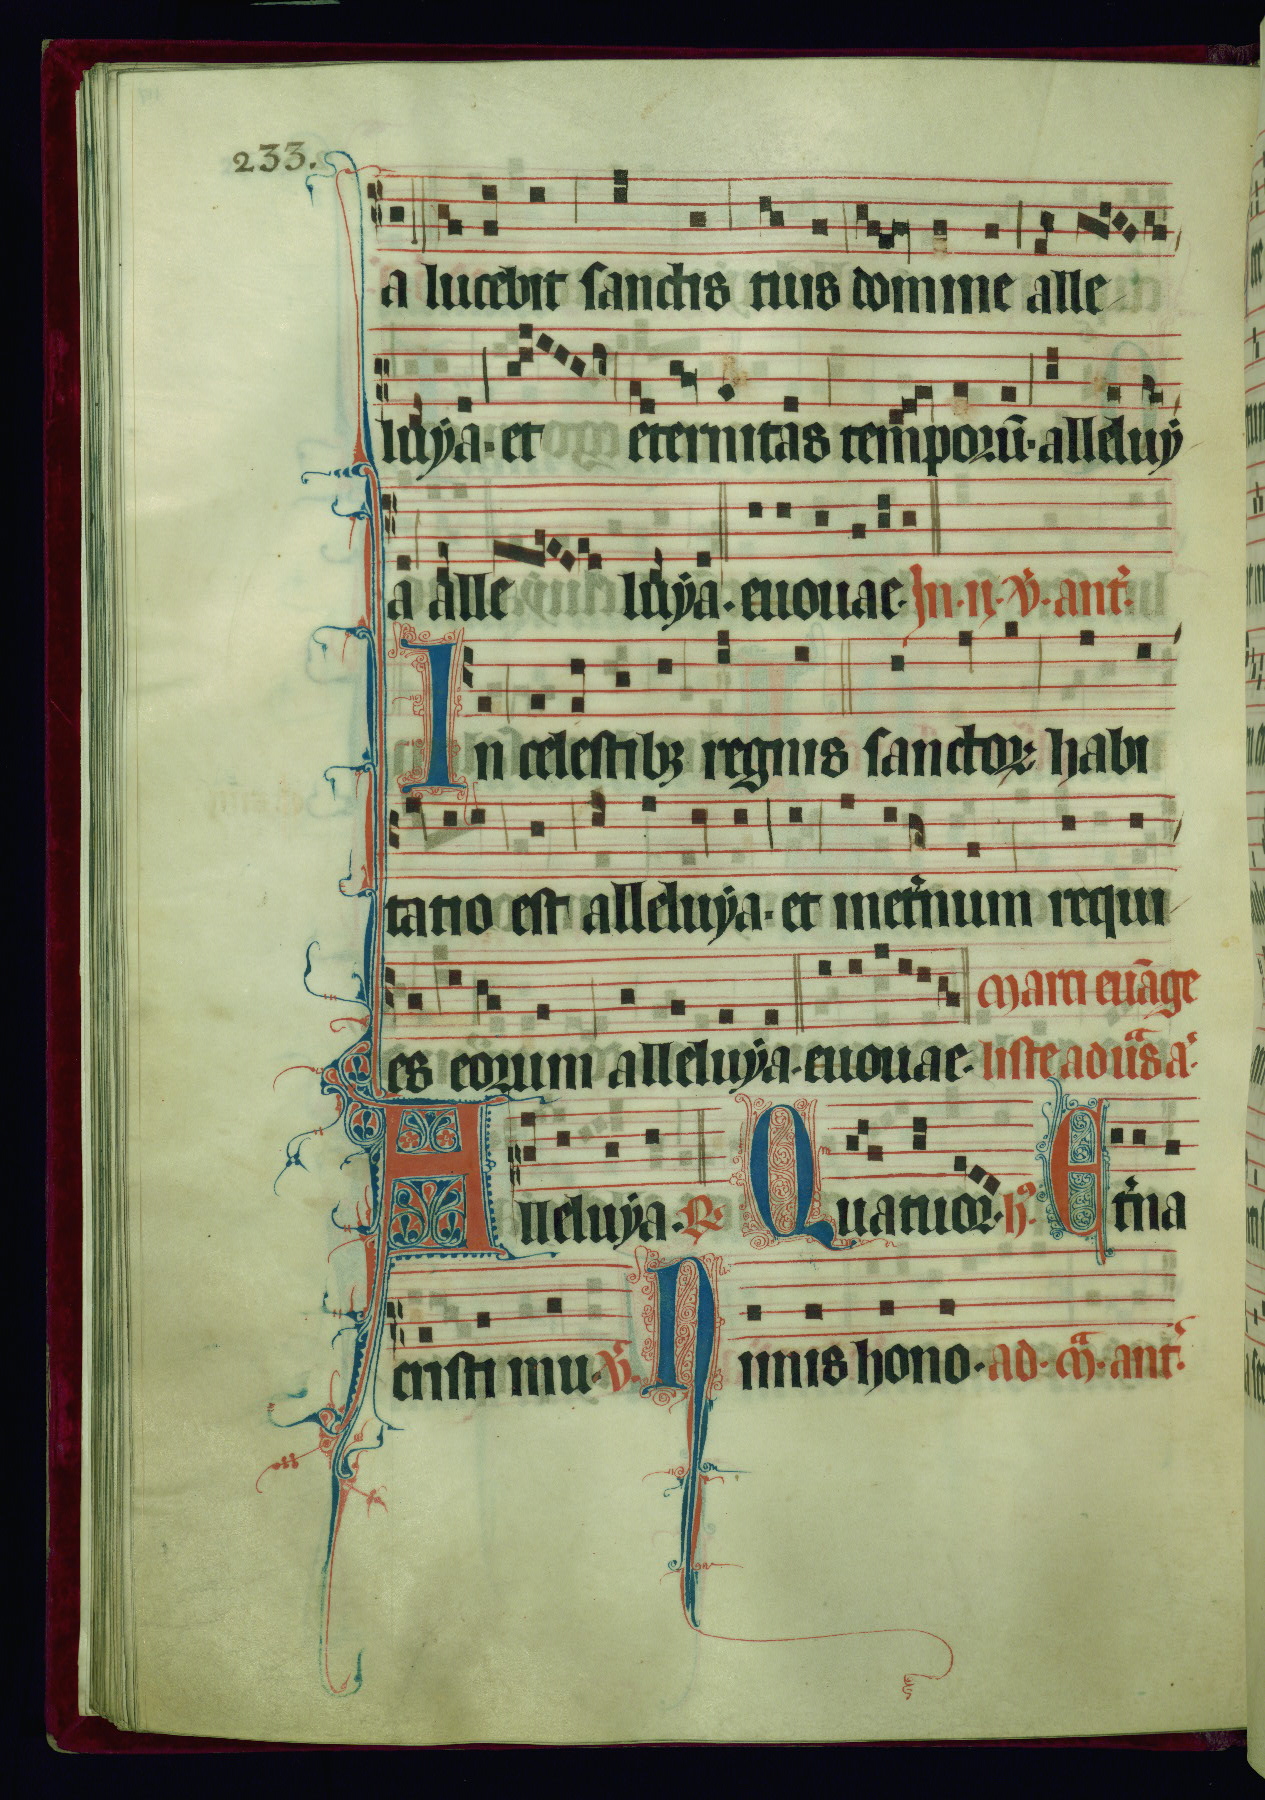 233.
a lucebit sanctis tuis domine alle
luya. et eternitas temporū. alleluy
a alle luya. euouae. In. ij. v̉. ant̉.
In celestibꝫ regnis sanctoꝝ habi
tatio est alleluya. et inet̉num requi
es eorum alleluya. euouae. Marci euāge
liste ad uͣs a̓.
Alleluya. ℟. Quatuor. hꝰ. Et̉na
cristi mu. v̉. Nimis hono. ad. mͣ. ant̉.